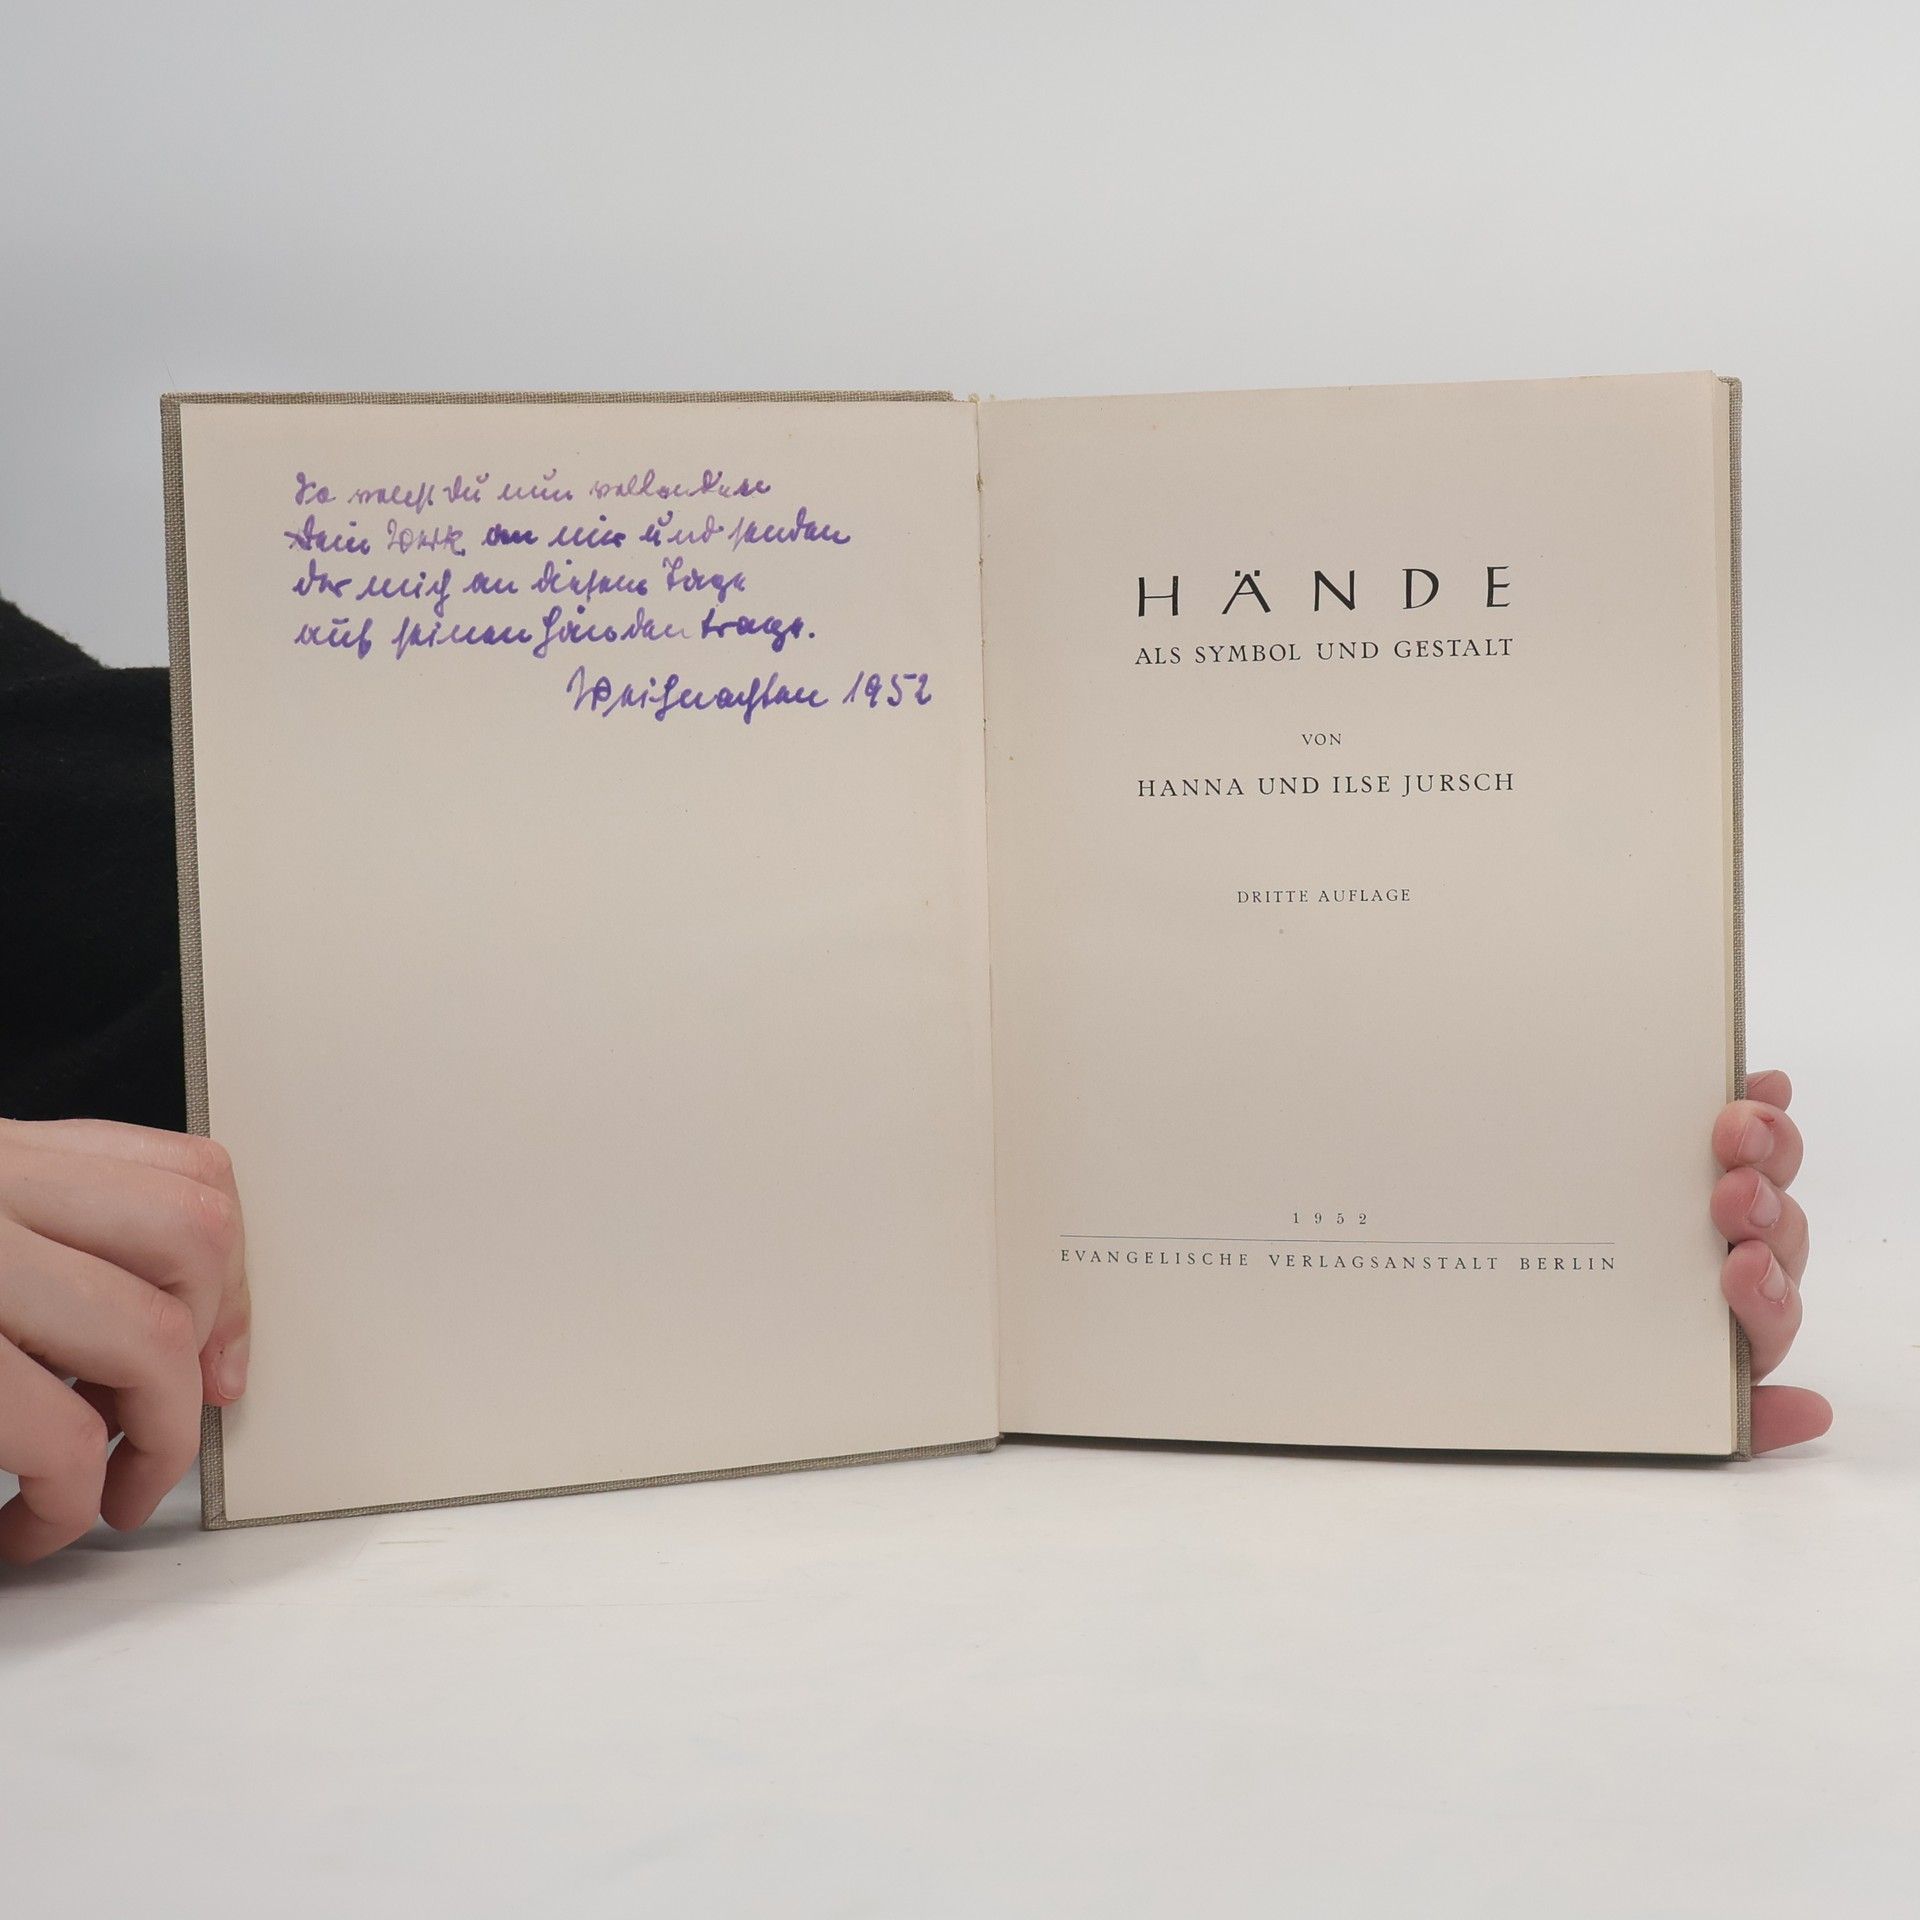 So wollst Du nun vollenden
Dein Werk an mir und senden
der mich an diesem Tage
auf seinen Händen trage.
Weihnachten 1952
HÄNDE
ALS SYMBOL UND GESTALT
VON
HANNA UND ILSE JURSCH
DRITTE AUFLAGE
1952
EVANGELISCHE VERLAGSANSTALT BERLIN